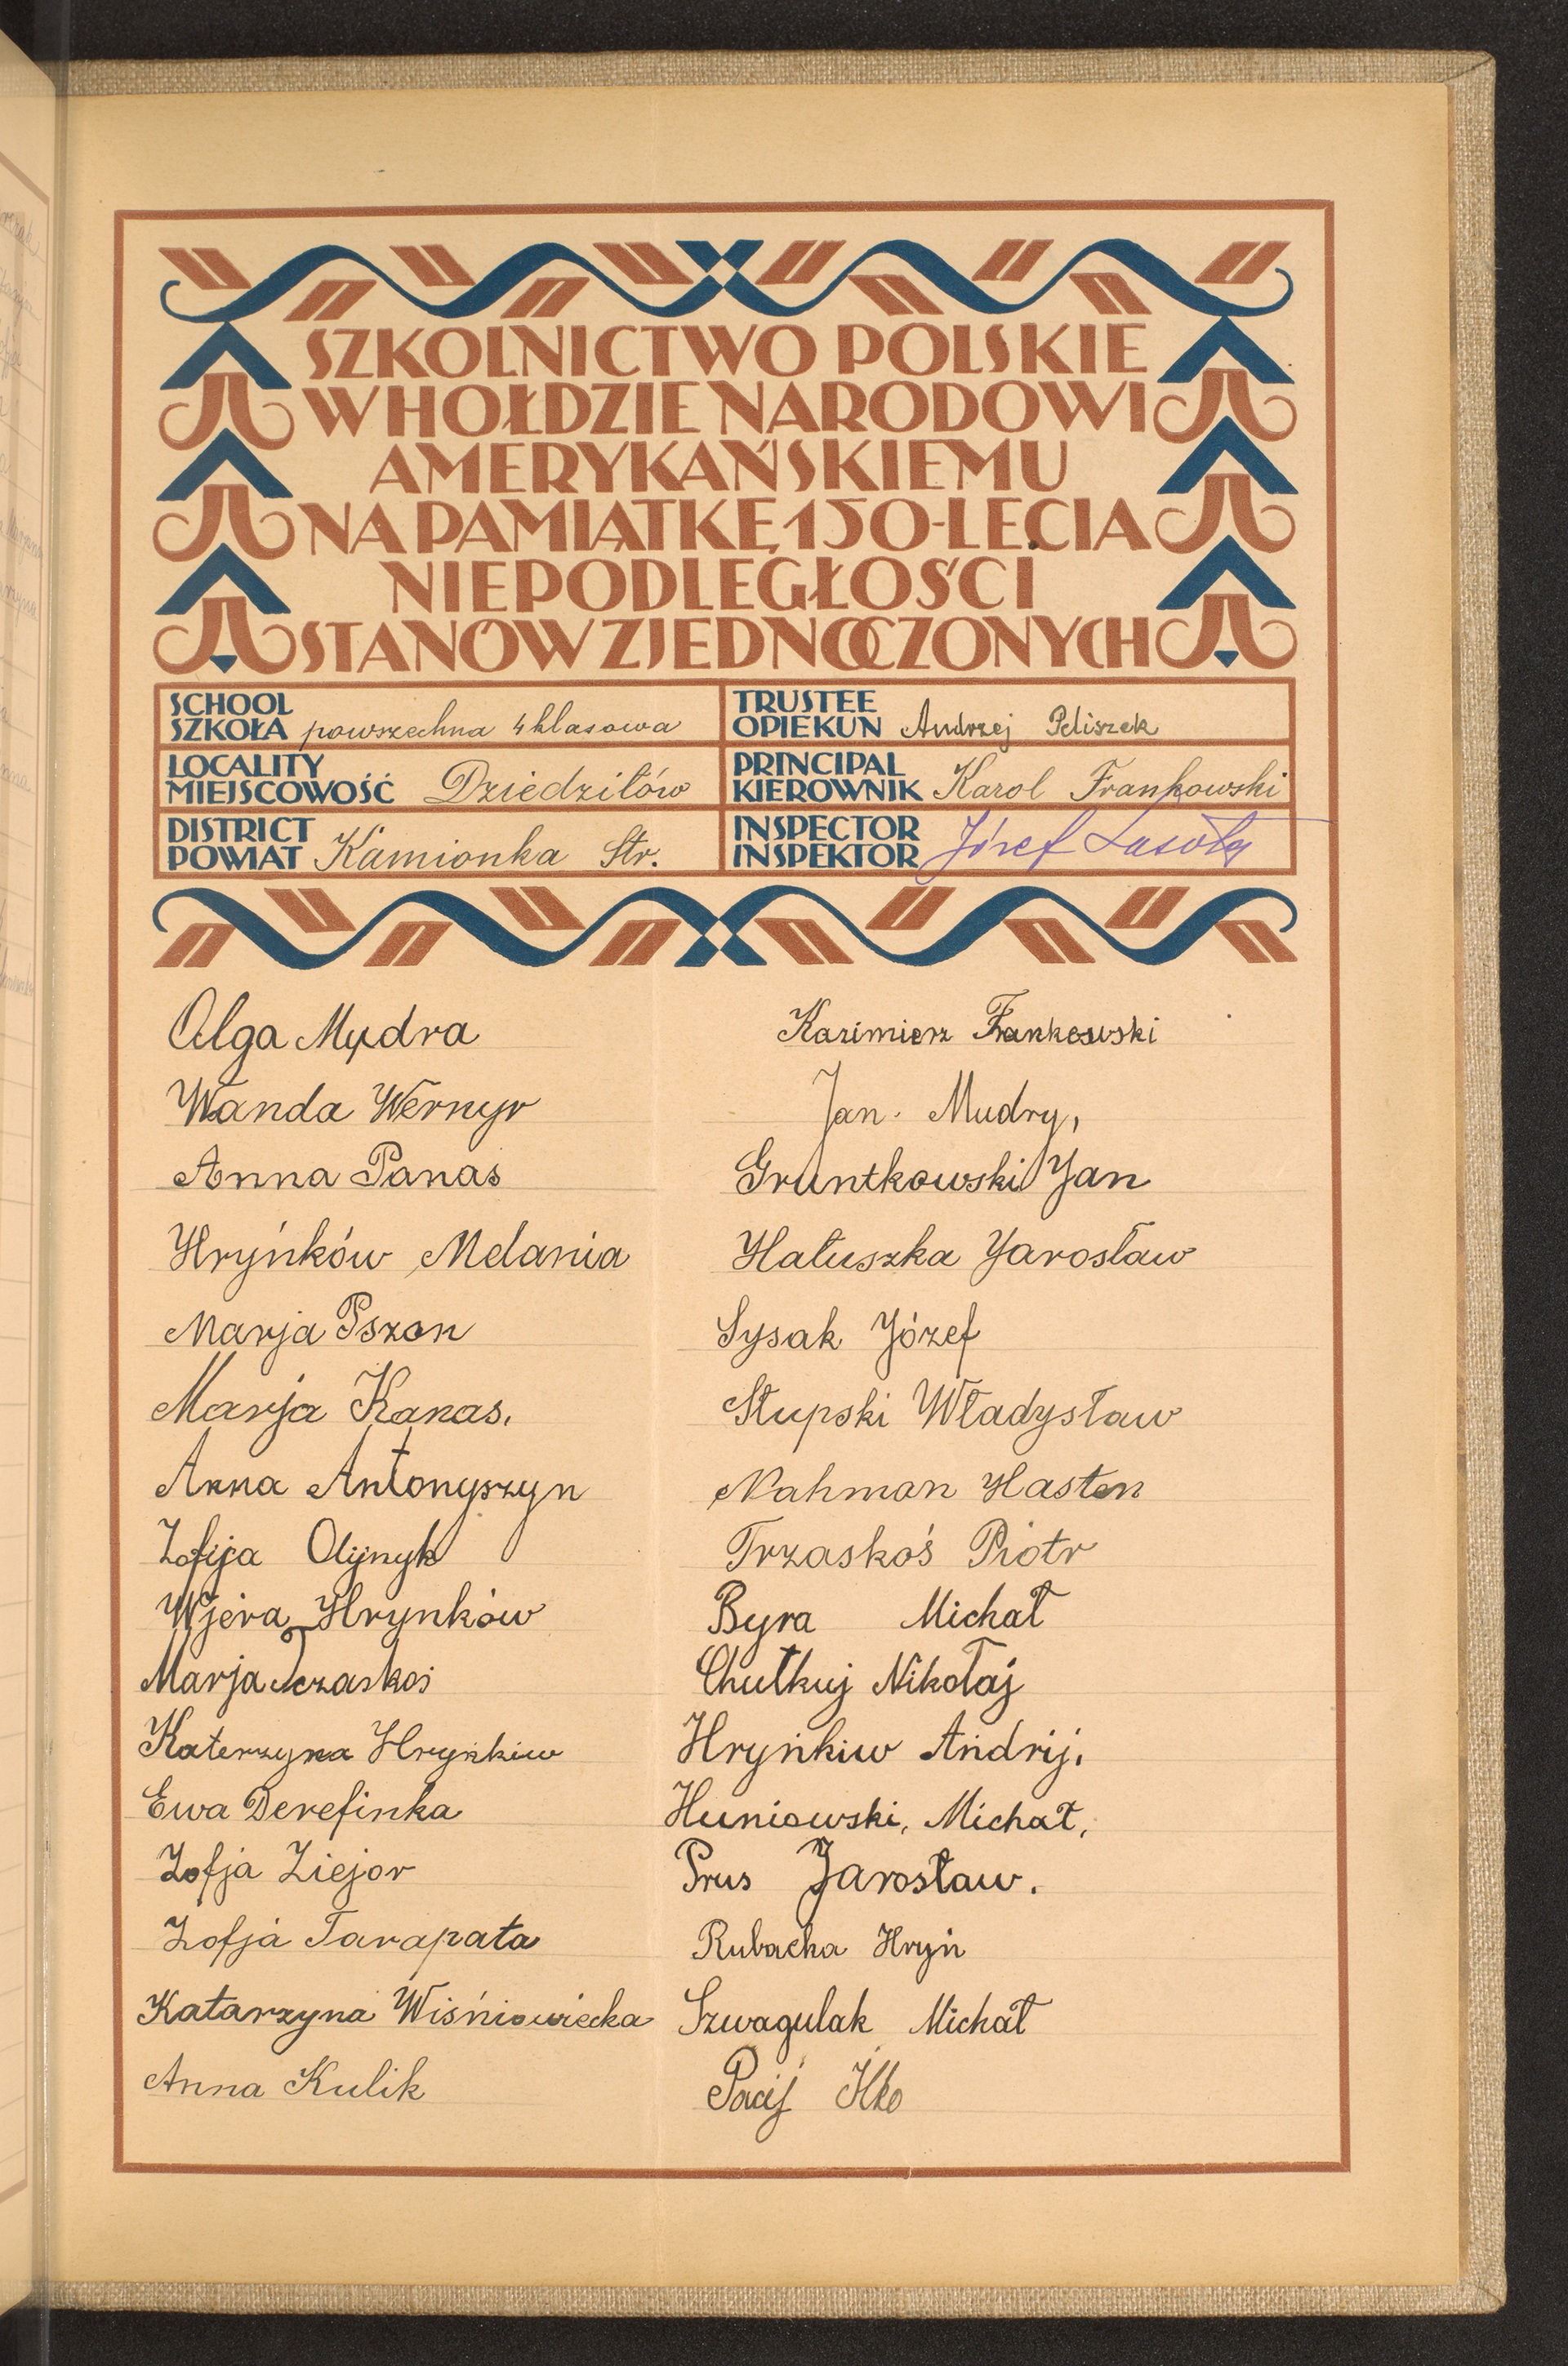 SZKOLNICTWO POLSKIE
W HOŁDZIE NARODOWI
AMERYKAŃSKIEMU
NA PAMIĄTKĘ 150-LECIA
NIEPODLEGŁOŚCI
STANÓW ZJEDNOCZONYCH
SCHOOL
SZKOŁA powszechna 4 klasowa
TRUSTEE
OPIEKUN Andrzej Peliszek
LOCALITY
MIEJSCOWOŚĆ Dziedziłów
PRINCIPAL
KIEROWNIK Karol Frankowski
DISTRICT
POWIAT Kamionka Str.
INSPECTOR
INSPEKTOR Józef Lasota
Olga Mydra
Wanda Wernyr
Anna Panas
Hryńków Melania
Marja Pszon
Marja Kanas.
Anna Antonyszyn
Zofija Olijnyk
Wjera Hrynków
Marja Trzaskoś
Katerzyna Hryńkiw
Ewa Derefinka
Zofja Ziejor
Zofja Tarapata
Katarzyna Wiśniowiecka
Anna Kulik
Kazimierz Frankowski
Jan. Mudry,
Gruntkowski Jan
Hałuszka Jarosław
Sysak Józef
Słupski Władysław
Nahman Hasten
Trzaskoś Piotr
Byra Michał
Chułkuj Nikołaj
Hryńkiw Andrij.
Huniowski, Michał,
Prus Jarosław.
Rubacha Hryń
Szwagulak Michał
Pacij Ilko